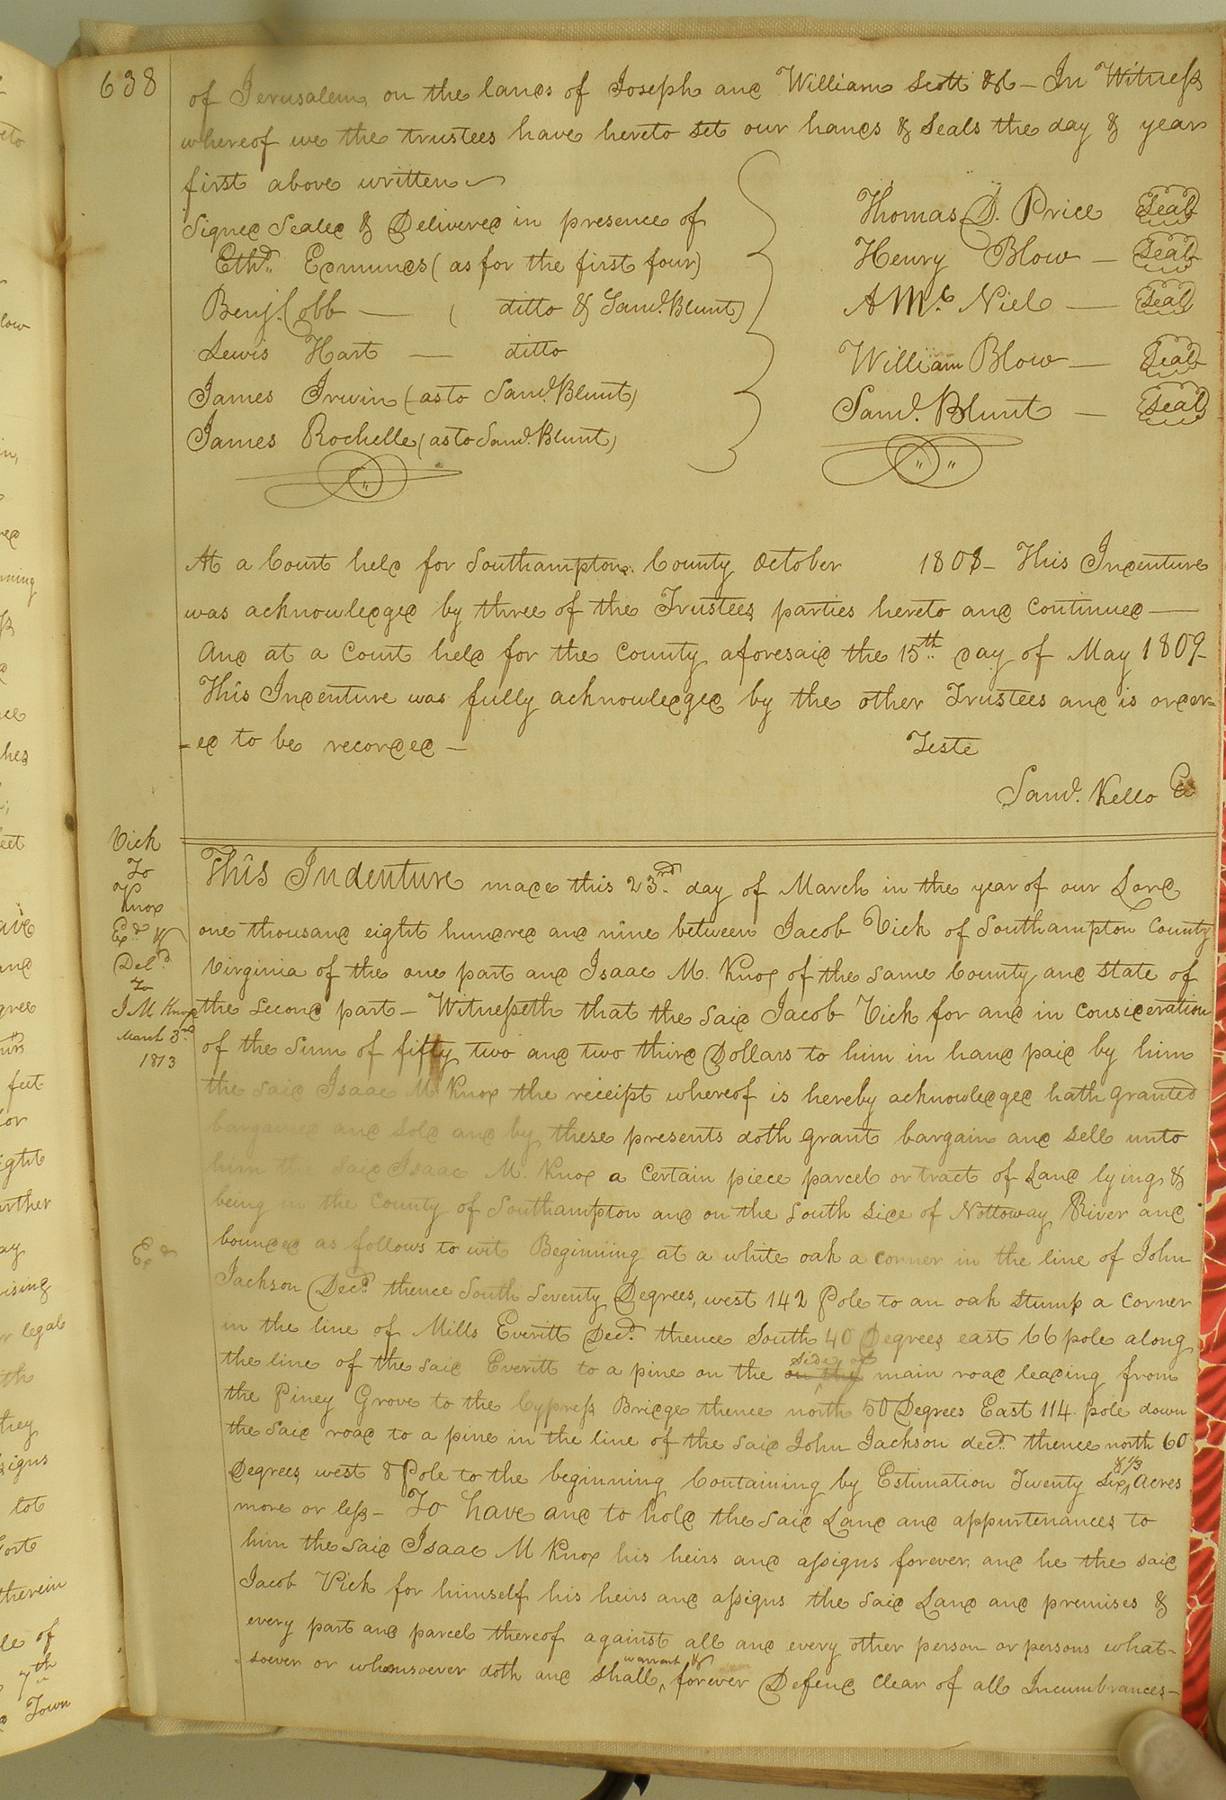 638
of Jerusalem, on the lands of Joseph and William Scott &c — In Witness
whereof we the trustees have hereto set our hands & seals the day & year
first above written
Signed Sealed & Delivered in presence of
Ethd. Edmunds (as for the first four)
Benj. Cobb — ( ditto & Saml. Blunt)
Lewis Hart — ditto
James Irwin (as to Saml. Blunt)
James Rochelle (as to Saml. Blunt)
Thomas D. Price Seal
Henry Blow — Seal
A Mc. Niel — Seal
William Blow — Seal
Saml. Blunt — Seal
At a Court held for Southampton County October 1808 — This Indenture
was acknowledged by three of the Trustees parties hereto and continued —
And at a Court held for the County aforesaid the 15th day of May 1809
This Indenture was fully acknowledged by the other Trustees and is order-
-ed to be recorded —
Teste
Saml. Kello Cl
Vick
To
Knox
Exd. &
Deld.
To
I M Knox
March 3rd
1813
Exd
This Indenture made this 23rd. day of March in the year of our Lord
one thousand eight hundred and nine between Jacob Vick of Southampton County
Virginia of the one part and Isaac M. Knox of the same County and state of
the second part — Witnesseth that the said Jacob Vick for and in consideration
of the sum of fifty two and two third Dollars to him in hand paid by him
the said Isaac M Knox the receipt whereof is hereby acknowledged hath granted
bargained and sold and by these presents doth grant bargain and sell unto
him the said Isaac M. Knox a certain piece parcel or tract of Land lying &
being in the County of Southampton and on the South side of Nottoway River and
bounded as follows to wit Beginning at a white oak a corner in the line of John
Jackson Decd. thence South Seventy Degrees, west 142 Pole to an oak stump a corner
in the line of Mills Everitt Decd. thence South 40 Degrees east 66 pole along
the line of the said Everitt to a pine on the side of main road leading from
the Piney Grove to the Cypress Bridge thence north 50 Degrees East 114 pole down
the said road to a pine in the line of the said John Jackson decd. thence north 60
Degrees west 8 Pole to the beginning Containing by Estimation Twenty six & 1/3 Acres
more or less — To have and to hold the said Land and appurtenances to
him the said Isaac M Knox his heirs and assigns forever, and he the said
Jacob Vick for himself his heirs and assigns the said Land and premises &
every part and parcel thereof against all and every other person or persons what-
soever or whomsoever doth and shall warrant & forever Defend clear of all Incumbrances —